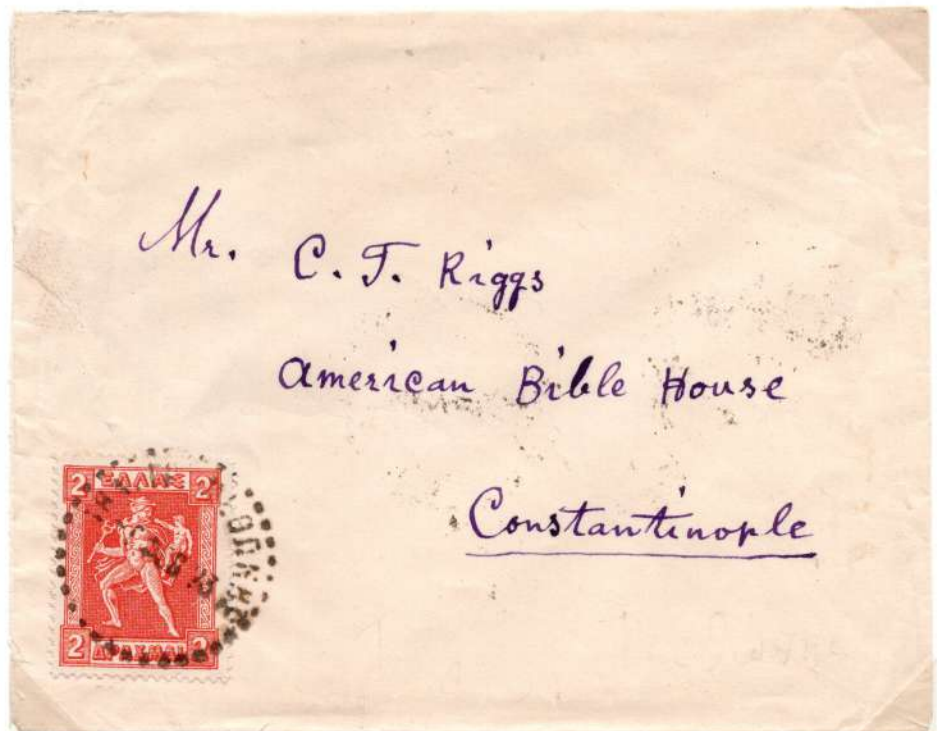 Mr. C. T. Riggs
American Bible House
Constantinople
2 ΕΛΛΑΣ 2
2 ΔΡΑΧΜΑΙ 2